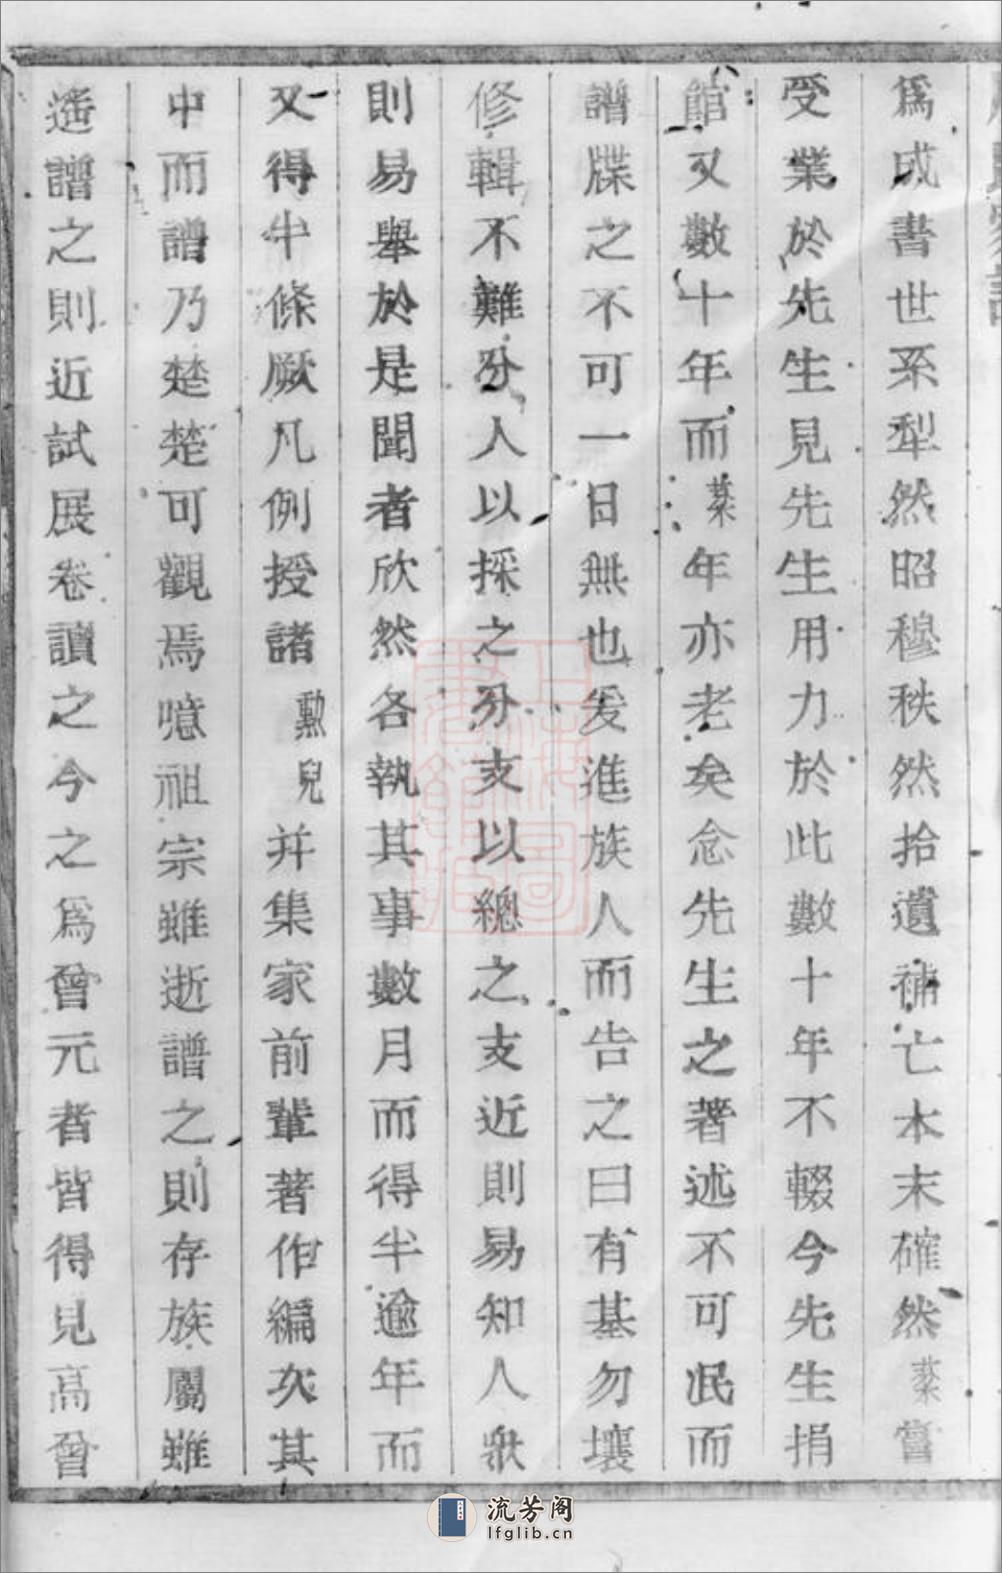 為成書世系犁然昭穆秩然拾遺補亡本末確然蓁嘗
受業於先生見先生用力於此數十年不輟今先生捐
館又數十年而蓁年亦老矣念先生之著述不可泯而
譜牒之不可一日無也爰進族人而告之曰有基勿壞
修輯不難分人以採之分支以總之支近則易知人眾
則易舉於是聞者欣然各執其事數月而得半逾年而
又得半條厥凡例授諸勲兒并集家前輩著作編次其
中而譜乃楚楚可觀焉噫祖宗雖逝譜之則存族屬雖
遙譜之則近試展卷讀之今之為曾元者皆得見高曾
流芳阁
lfglib.cn